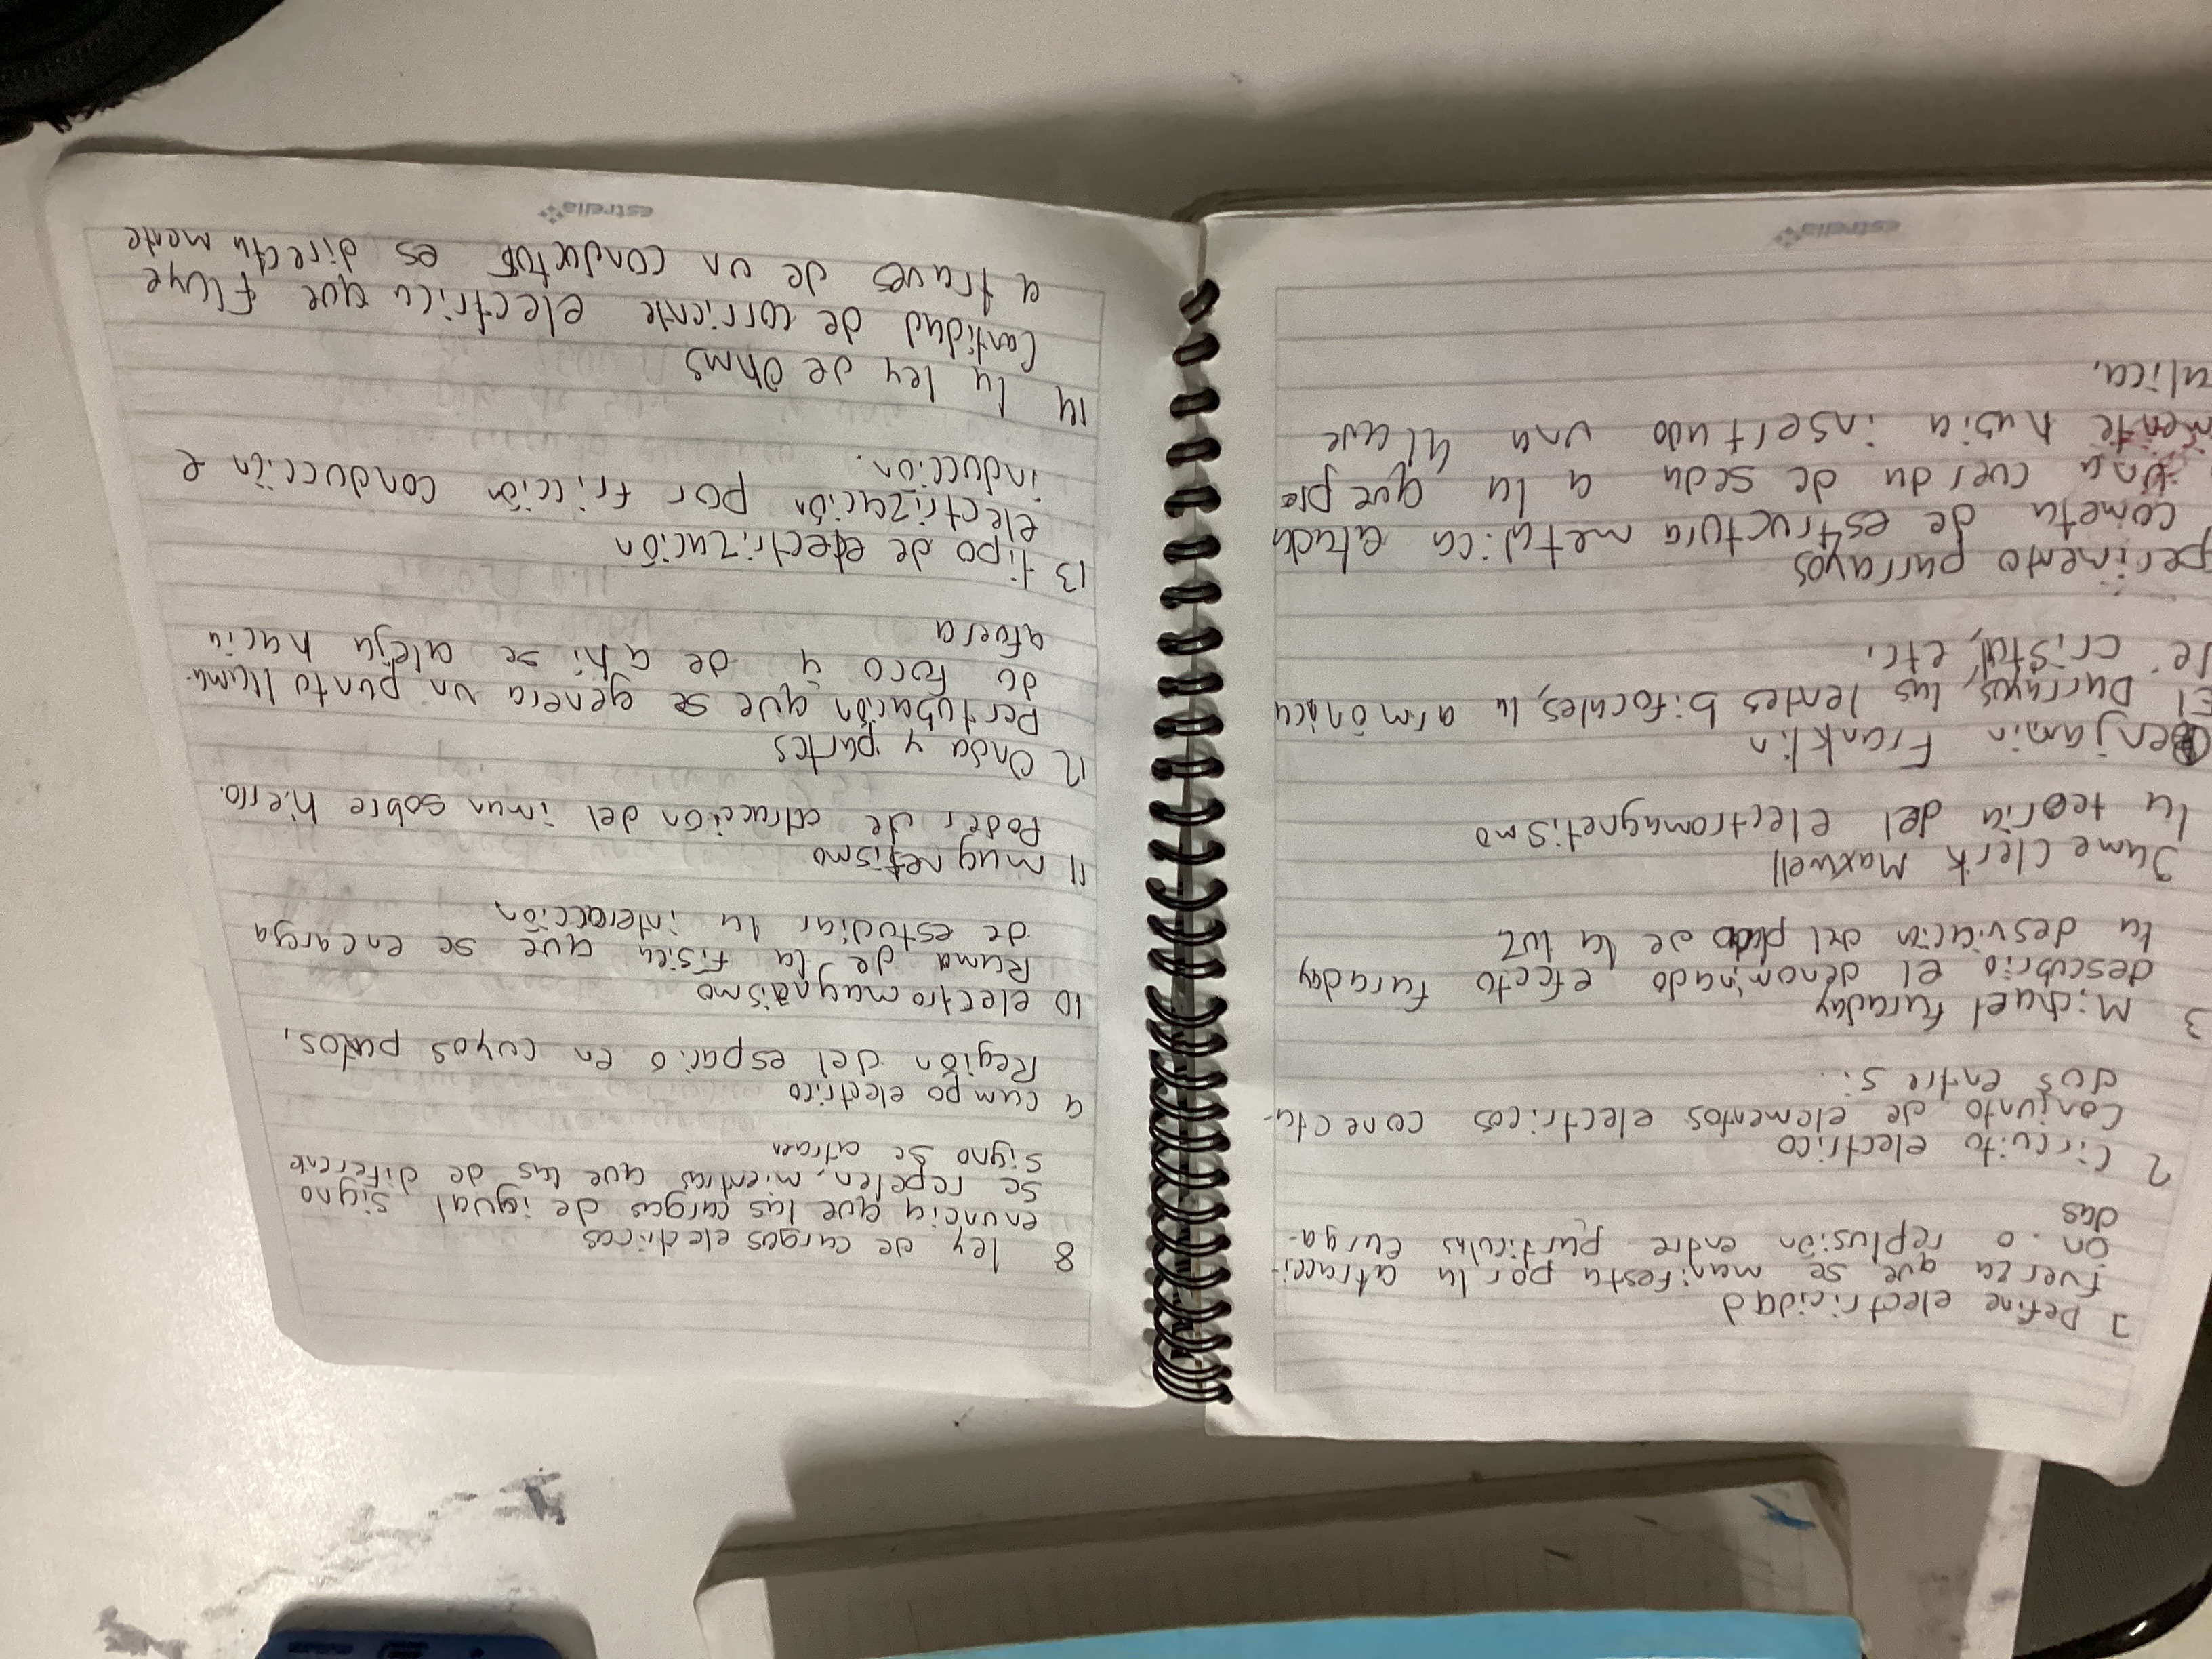 1 Define electricidad
fuerza que se manifesta por la atracci-
ón o replusión entre particulas carga-
das
2 Circuito electrico
Conjunto de elementos electricos conecta-
dos entre si.
3 Michael faraday
descubrio el denominado efecto faraday
la desviación del plano de la luz
Jame Clerk Maxwell
la teoria del electromagnetismo
Benjamin Franklin
El parrayos, las lentes bifocales, la armónica
de cristal, etc.
perimento parrayos
cometa de estructura metalica atada
una cuerda de seda a la que pre
mente había insertado una llave
alica.
estrella
8 ley de cargas electricas
enuncia que las cargas de igual signo
se repelen, mientras que las de diferente
signo se atraen
9 campo electrico
Región del espacio en cuyos puntos,
10 electromagnetismo
Rama de la fisica que se encarga
de estudiar la interacción
11 magnetismo
Poder de atracción del iman sobre hierro.
12 Onda y partes
Pertubación que se genera un punto llama-
do foco y de ahi se aleja hacia
afuera
13 tipo de electrización
electrización por fricción conducción e
inducción.
14 la ley de Ohms
Cantidad de corriente electrica que fluye
a traves de un conductor es directa mente
estrella